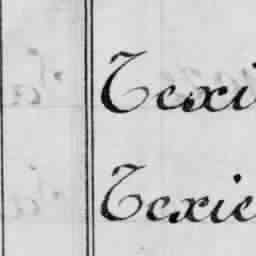 Texi
Texie